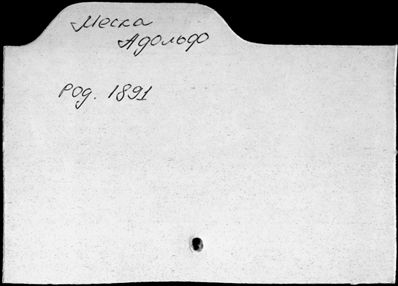 Меска
Адольфо
Род. 1891